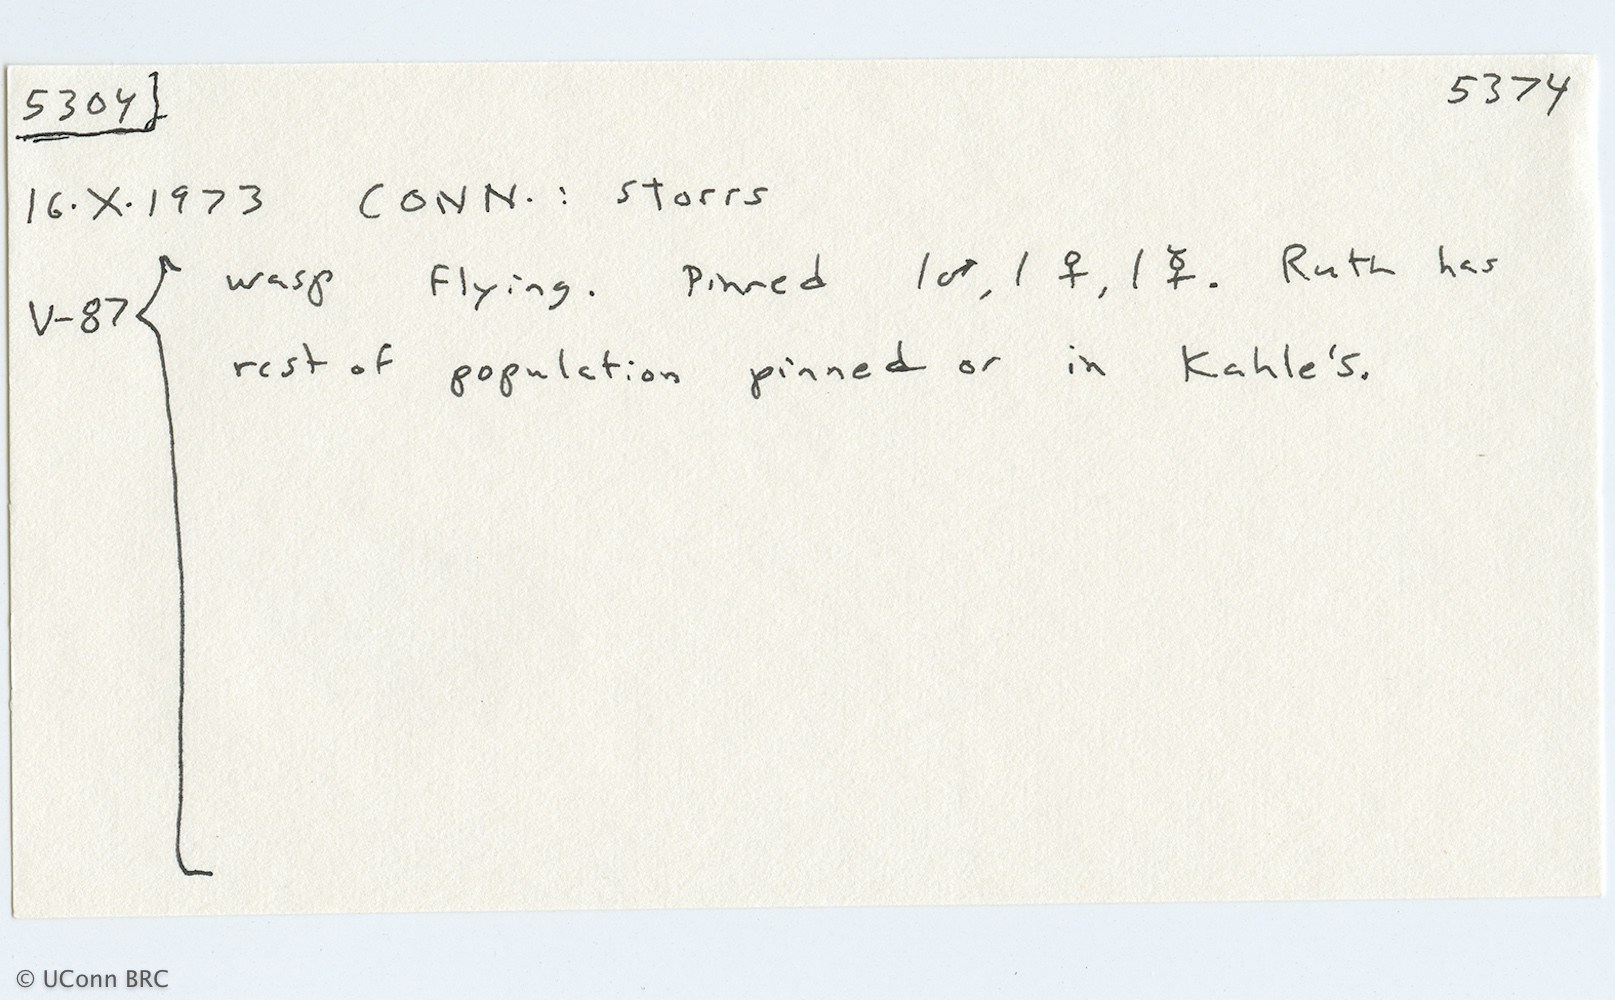 5304}
5374
16.X.1973 CONN.: Storrs
V-87 { wasp flying. Pinned 1♂, 1 ♀, 1 ☿. Ruth has
rest of population pinned or in Kahle's.
© UConn BRC